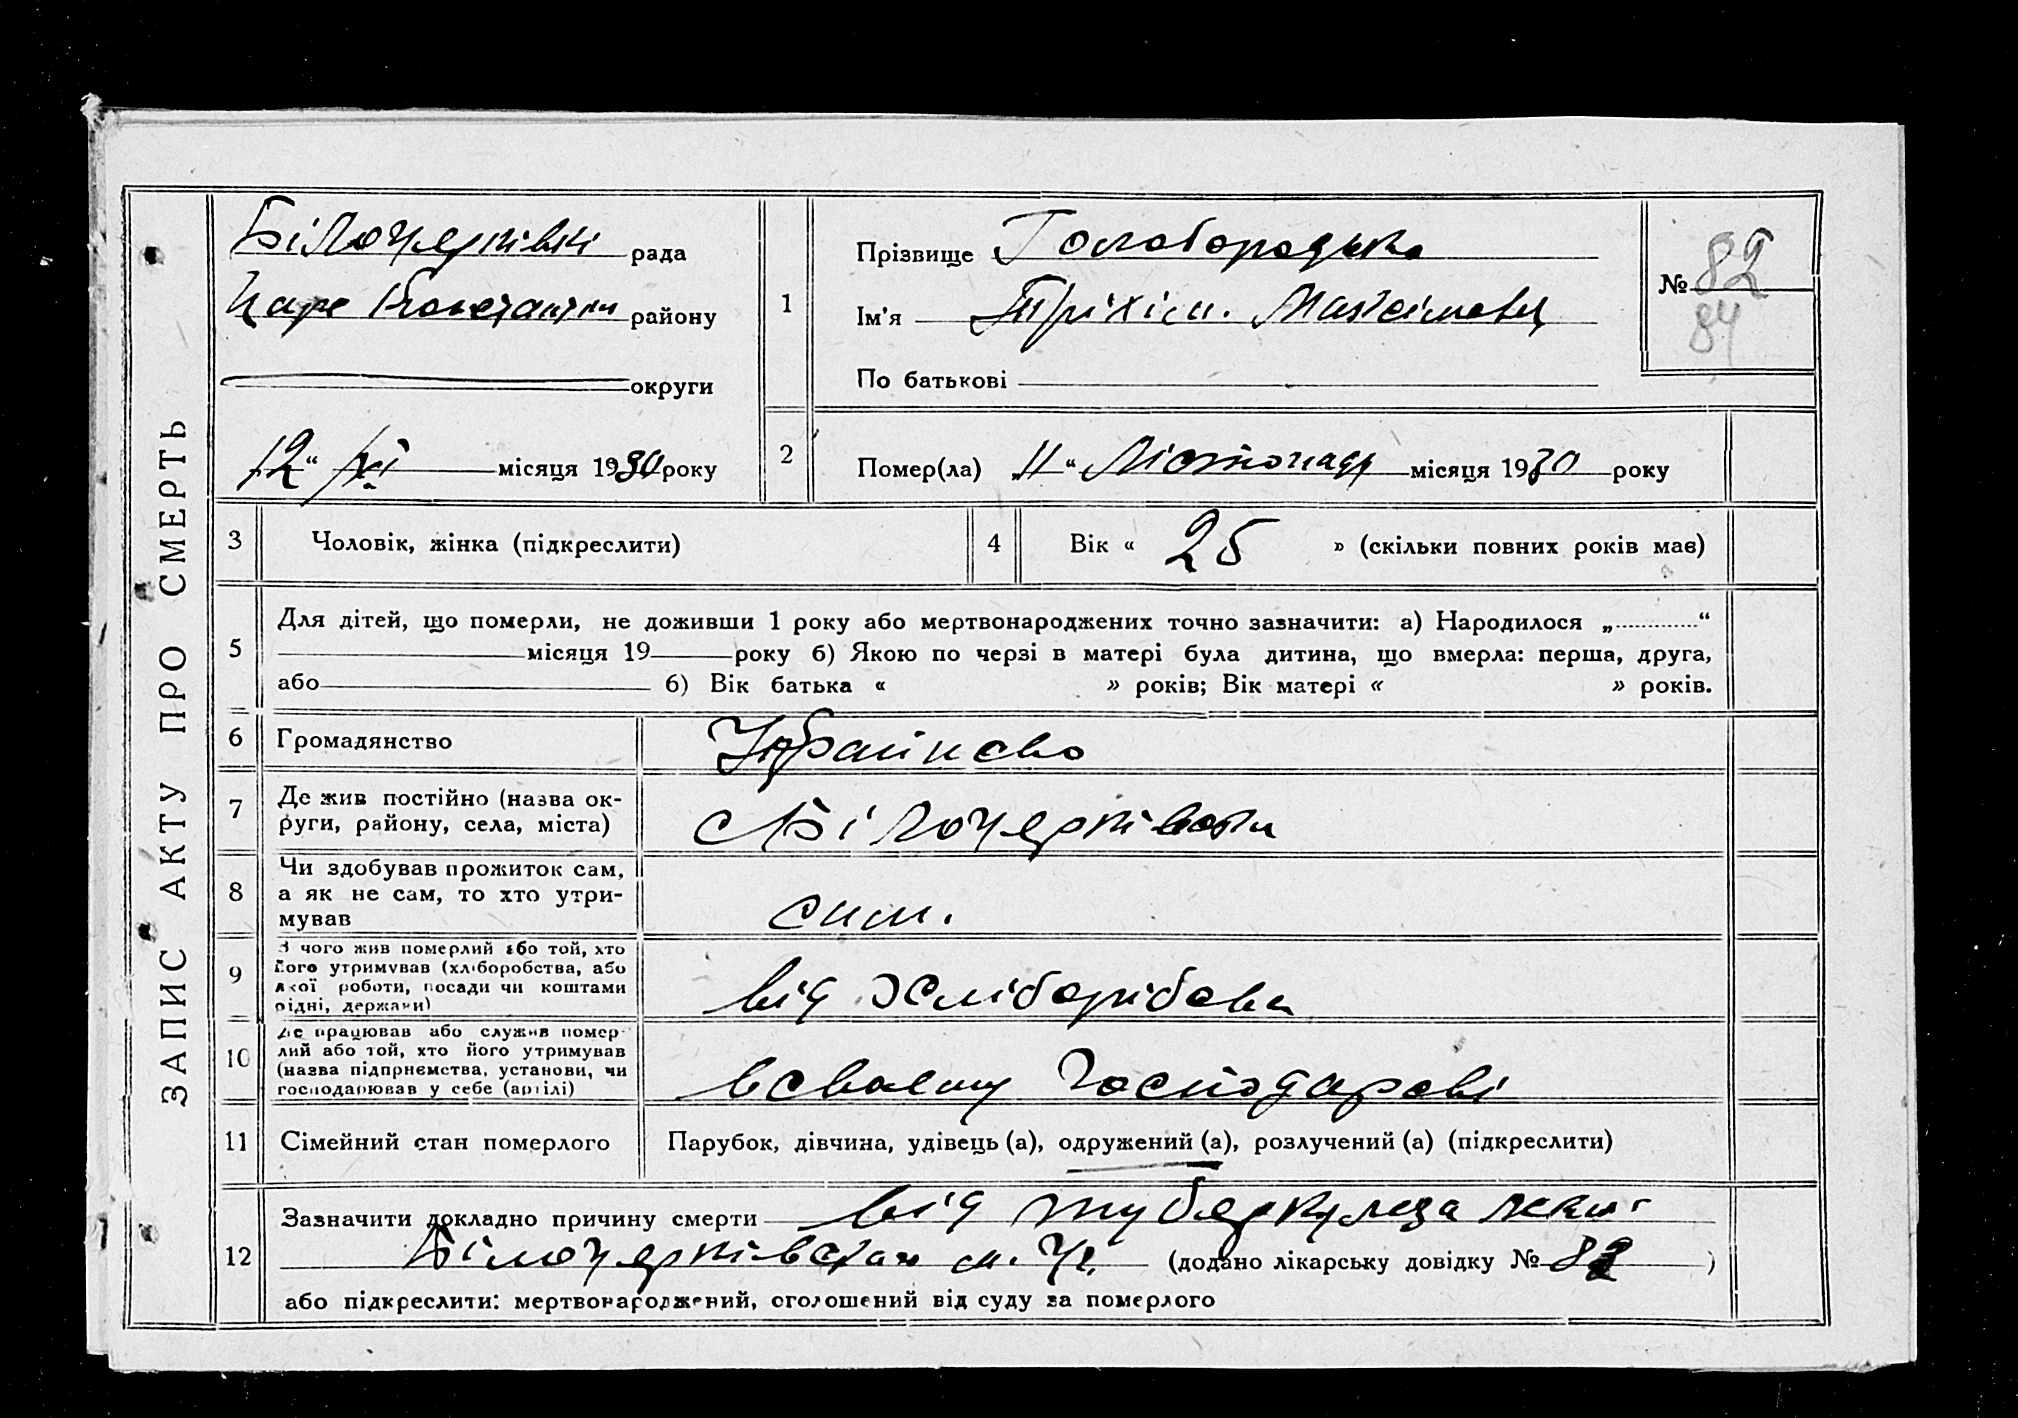 ЗАПИС АКТУ ПРО СМЕРТЬ
Білочерківкі рада
Царе Константин району
округи
„12“ XI місяця 1930 року
1
Прізвище Голобородько
Ім'я Тріхім. Максімович
По батькові
№ 82
84
2
Помер(ла) „11“ Лістопада місяця 1930 року
3 Чоловік, жінка (підкреслити)
4 Вік « 25 » (скільки повних років має)
5 Для дітей, що померли, не доживши 1 року або мертвонароджених точно зазначити: а) Народилося „ “
місяця 19 року б) Якою по черзі в матері була дитина, що вмерла: перша, друга,
або б) Вік батька « » років; Вік матері « » років.
6 Громадянство
7 Де жив постійно (назва ок-
руги, району, села, міста)
8 Чи здобував прожиток сам,
а як не сам, то хто утри-
мував
сам.
9 З чого жив померлий або той, хто
його утримував (хліборобства, або
якої роботи, посади чи коштами
рідні, держави)
від хліборібства
10 Де працював або служив помер-
лий або той, хто його утримував
(назва підприємства, установи, чи
господарював у себе (артілі)
всвоєму господарсві
11 Сімейний стан померлого
Парубок, дівчина, удівець (а), одружений (а), розлучений (а) (підкреслити)
12 Зазначити докладно причину смерти від туберкулеза
(додано лікарську довідку № 82 )
або підкреслити: мертвонароджений, оголошений від суду за померлого